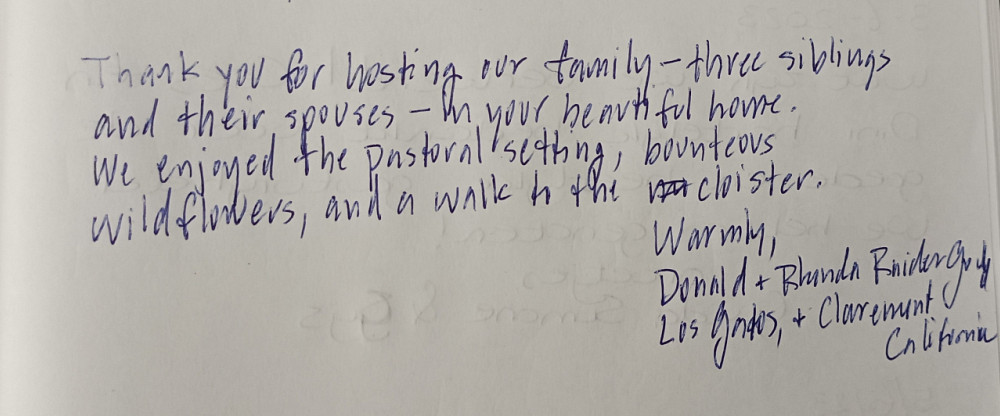 Thank you for hosting our family – three siblings
and their spouses – in your beautiful home.
We enjoyed the pastoral setting, bounteous
wildflowers, and a walk to the cloister.
Warmly,
Donald + Rhonda Raider
Los Gatos, + Claremont
California